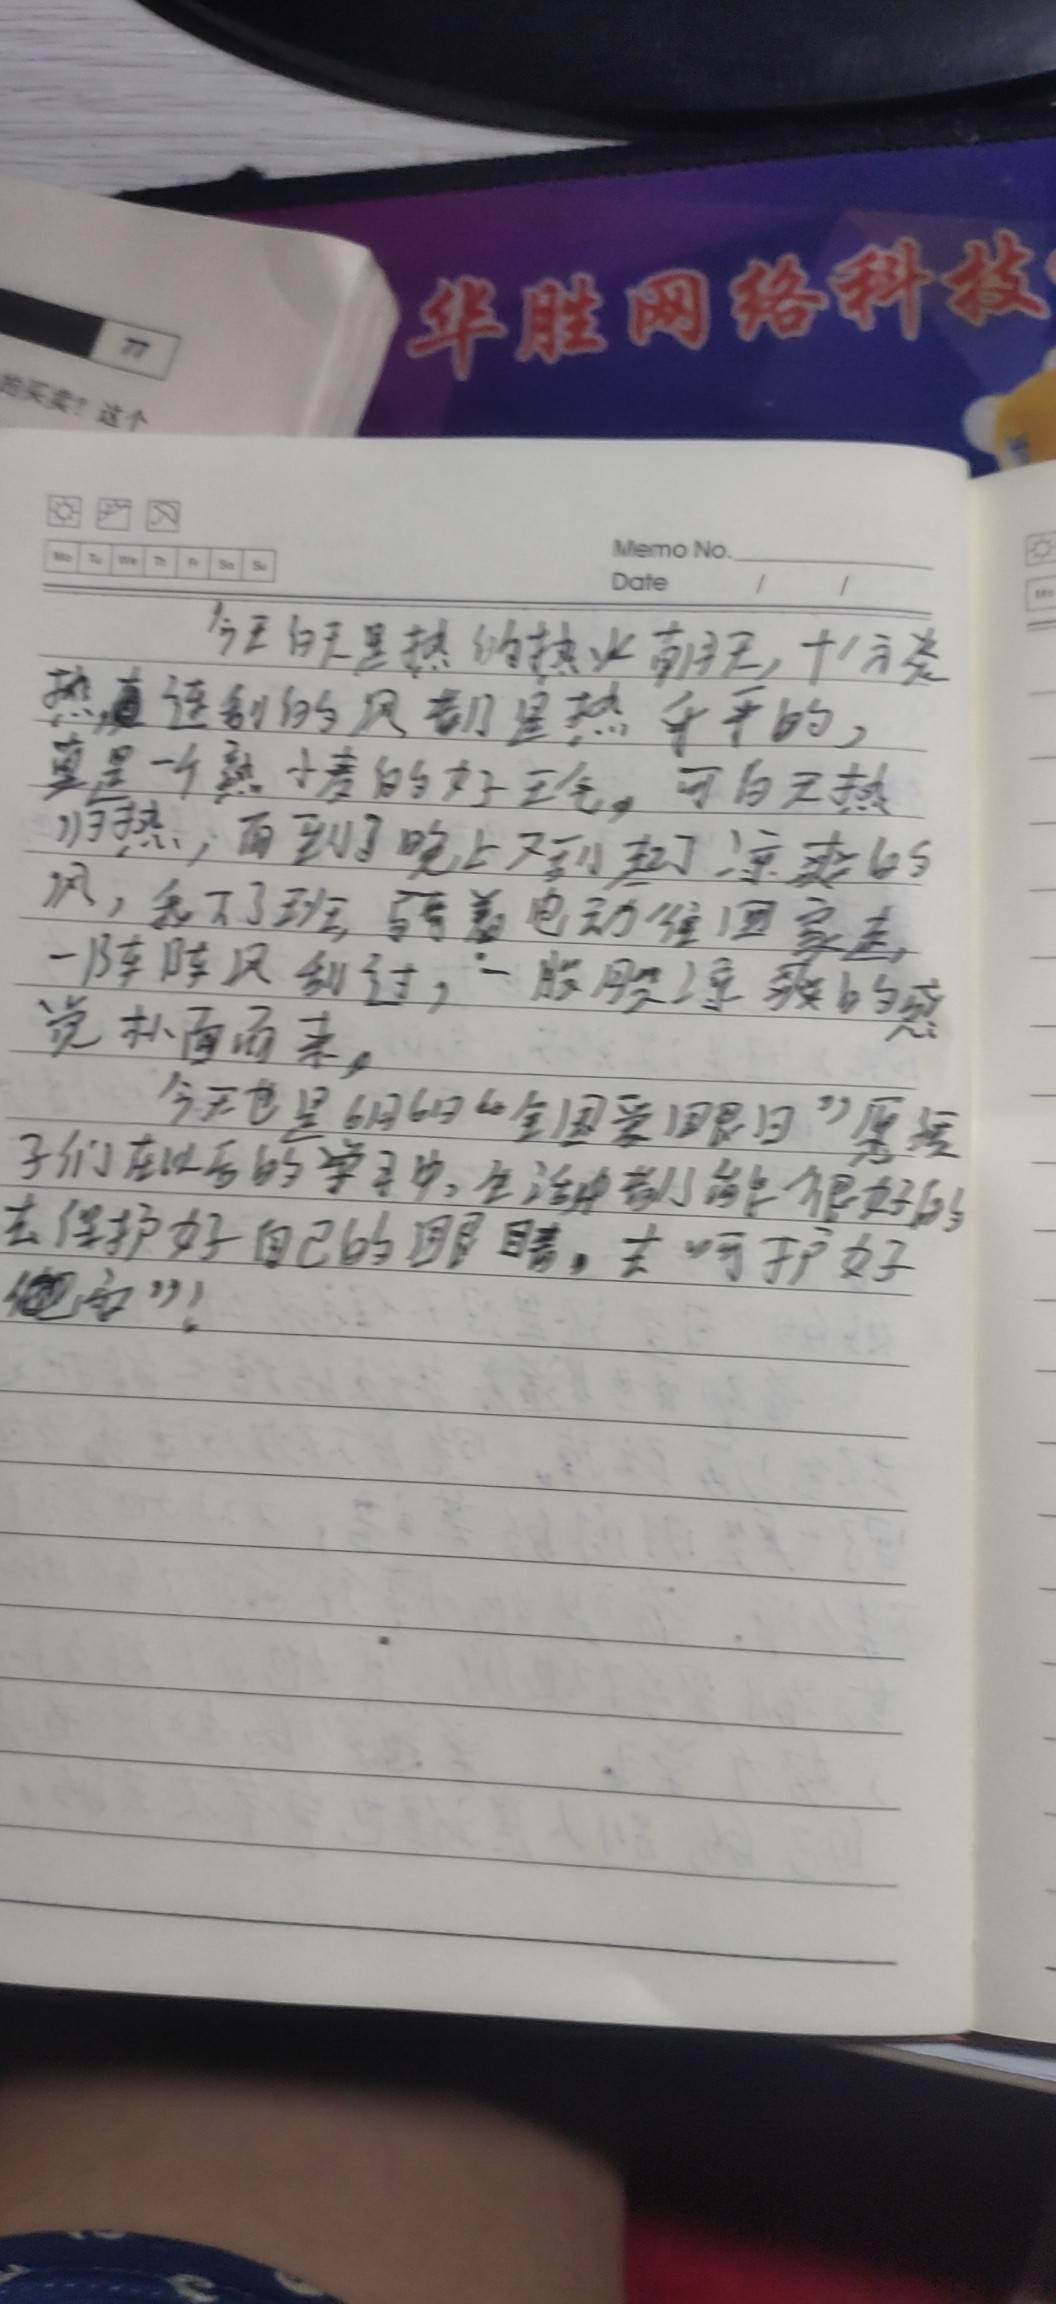 华胜网络科技
77
的买卖？这个
Memo No.
Mo Tu We Th Fr Sa Su
Date / /
今天白天是热的热火朝天，十分炎
热，连刮的风都是热乎乎的，
真是一个熟小麦的好天气。可白天热
归热，而到了晚上又刮起了凉爽的
风，我下了班，骑着电动往回家走，
一阵阵风刮过，一股股凉爽的感
觉扑面而来。
今天也是6月6日“全国爱眼日”愿孩
子们在以后的学习中、生活中都能很好的
去保护好自己的眼睛，去呵护好
”！